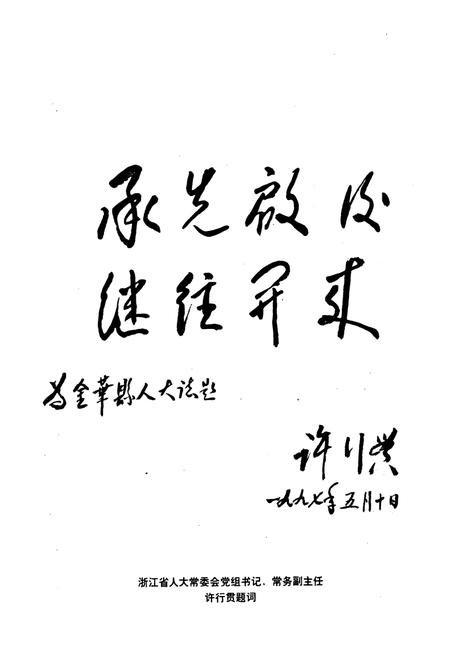 承先啟后
继往开来
为金華縣人大志题
许行贯
一九九七年五月十日
浙江省人大常委会党组书记、常务副主任
许行贯题词